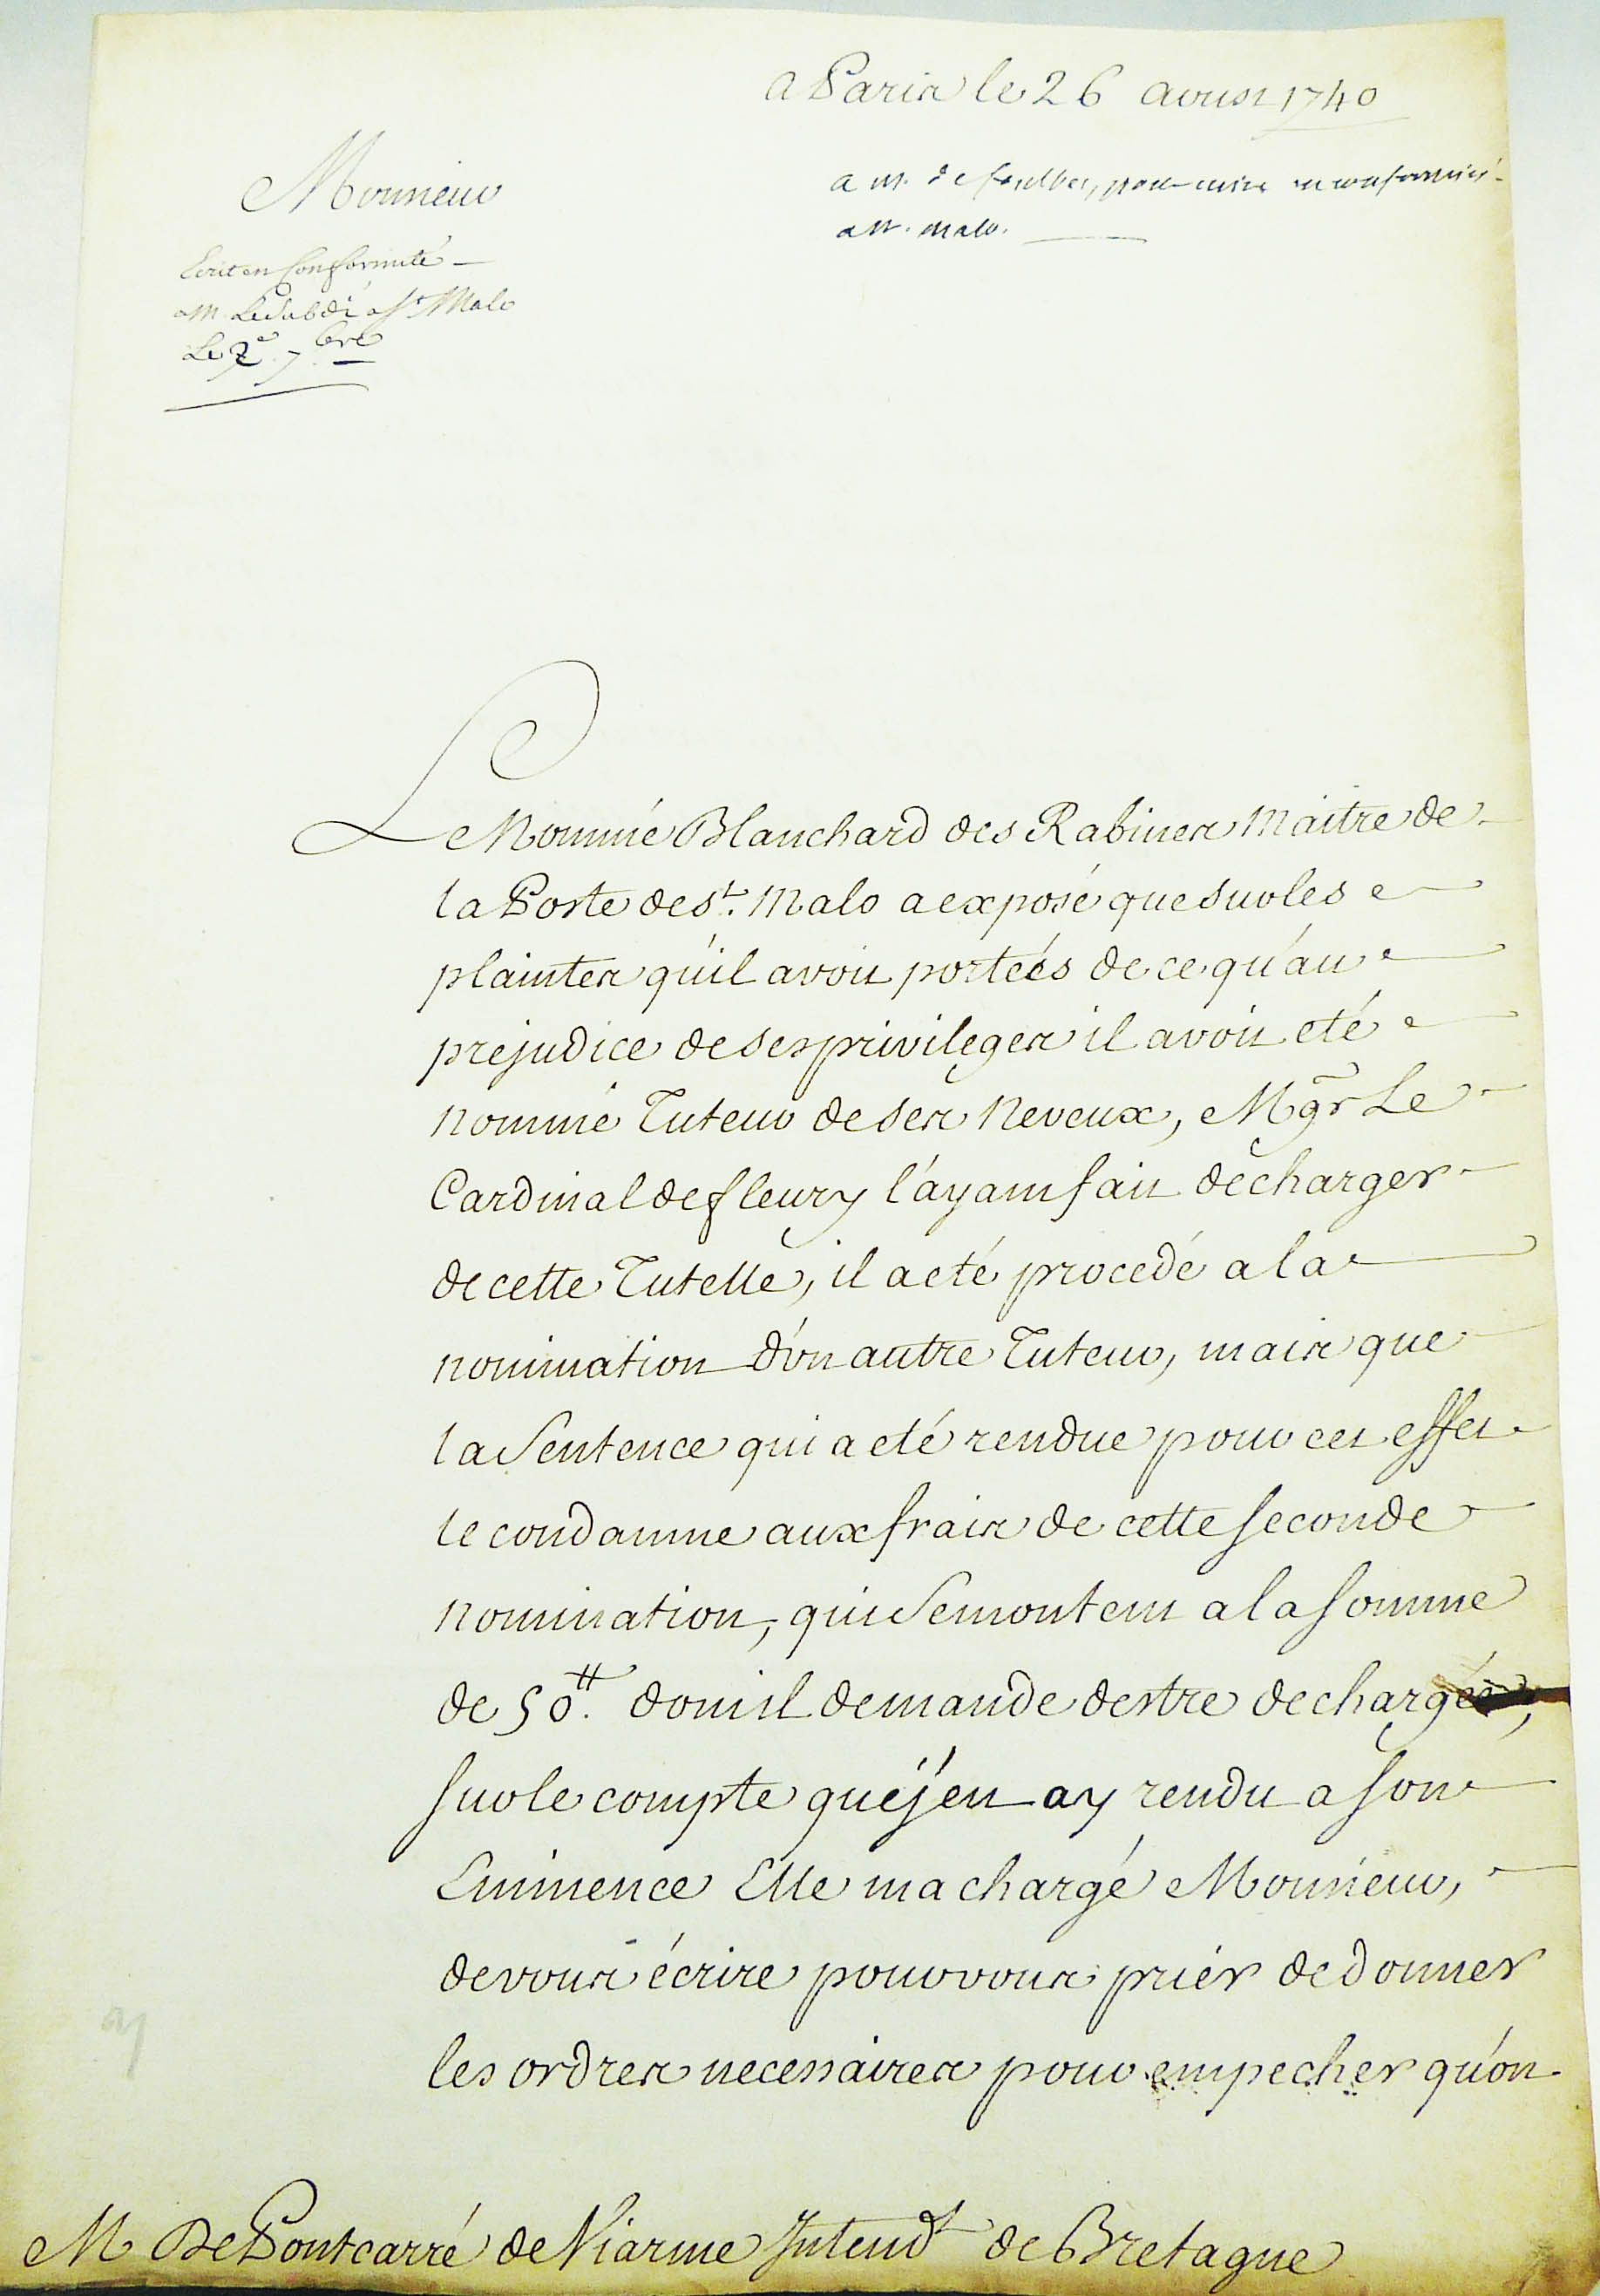 a Paris le 26 aoust 1740
Monsieur
a M. de pour ecrire en conformité
a St. Malo.
Ecrit en Conformité
a M. Le Subdé a St Malo
Le 2e 7bre
Le Nommé Blanchard des Rabines Maitre de
la Poste de St. Malo a exposé que sur les
plaintes qu'il avoit portées de ce qu'au
prejudice de ses privileges il avoit eté
nommé Tuteur de ses Neveux, Mgr Le
Cardinal de fleury l'ayant fait décharger
de cette Tutelle, il a eté procedé a la
nomination d'un autre Tuteur, mais que
la Sentence qui a eté rendue pour cet effet
le condamne aux frais de cette seconde
nomination, qui se montent a la somme
de 50tt. dont il demande destre dechargé,
sur le compte que j'en ay rendu a son
Eminence Elle m'a chargé Monsieur,
de vous écrire pour vous prier de donner
les ordres necessaires pour empecher qu'on
M De Pontcarré de Viarme Intendt de Bretagne